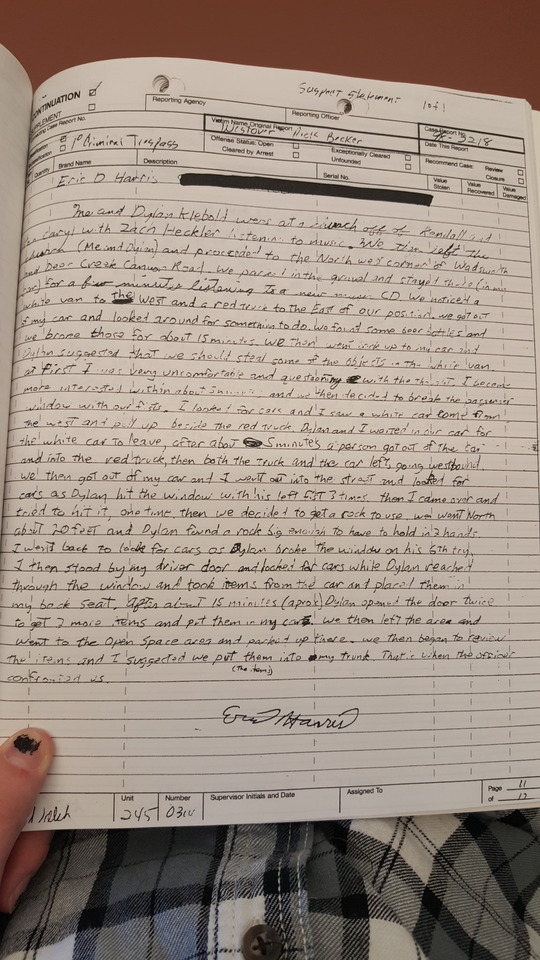 Suspect Statement 1 of 1
CONTINUATION
Reporting Agency
Reporting Officer
Victim Name Original Report
Westover Rick Becker
Case Report No.
3218
Case Report No.
1° Criminal Trespass
Offense Status: Open
Cleared by Arrest
Exceptionally Cleared
Unfounded
Date This Report
Recommend Case: Review
Closure
Quantity
Brand Name
Description
Serial No.
Value Stolen
Value Recovered
Value Damaged
Eric D Harris
Me and Dylan Klebold were at a church off of Kendall and
with Zach Heckler listening to music. We than left the
church (Me and Dylan) and proceeded to the North west corner of Wadsworth
and Deer Creek Canyon Road. We parked in the gravel and stayed there (in my
car) for a few minutes listening to a new music CD. We noticed a
white van to the West and a red truck to the East of our position. we got out
of my car and looked around for something to do. We found some beer bottles and
we broke those for about 15 minutes. We then went back up to my car and
Dylan suggested that we should steal some of the objects in the white van.
at first I was very uncomfortable and questioning with the theft. I became
more interested within about 5 minutes and we then decided to break the passenger
window with our fists. I looked for cars and I saw a white car come from
the west and pull up beside the red truck. Dylan and I waited in our car for
the white car to leave, after about 5 minutes a person got out of the car
and into the red truck, then both the truck and the car left, going westbound
we then got out of my car and I went out into the street and looked for
cars as Dylan hit the window with his left fist 3 times. then I came over and
tried to hit it, one time. then we decided to get a rock to use. we went North
about 20 feet and Dylan found a rock big enough to have to hold in 2 hands.
I went back to look for cars as Dylan broke the window on his 6th try.
I then stood by my driver door and looked for cars while Dylan reached
through the window and took items from the car and placed them in
my back seat. After about 15 minutes (aprox) Dylan opened the door twice
to get 2 more items and put them in my car. we then left the area and
went to the Open Space area and parked up there. we then began to review
the items and I suggested we put them into my trunk. That is when the officer
(the items)
confronted us.
Eric Harris
Unit
245
Number
Supervisor Initials and Date
Assigned To
Page 11
of 12